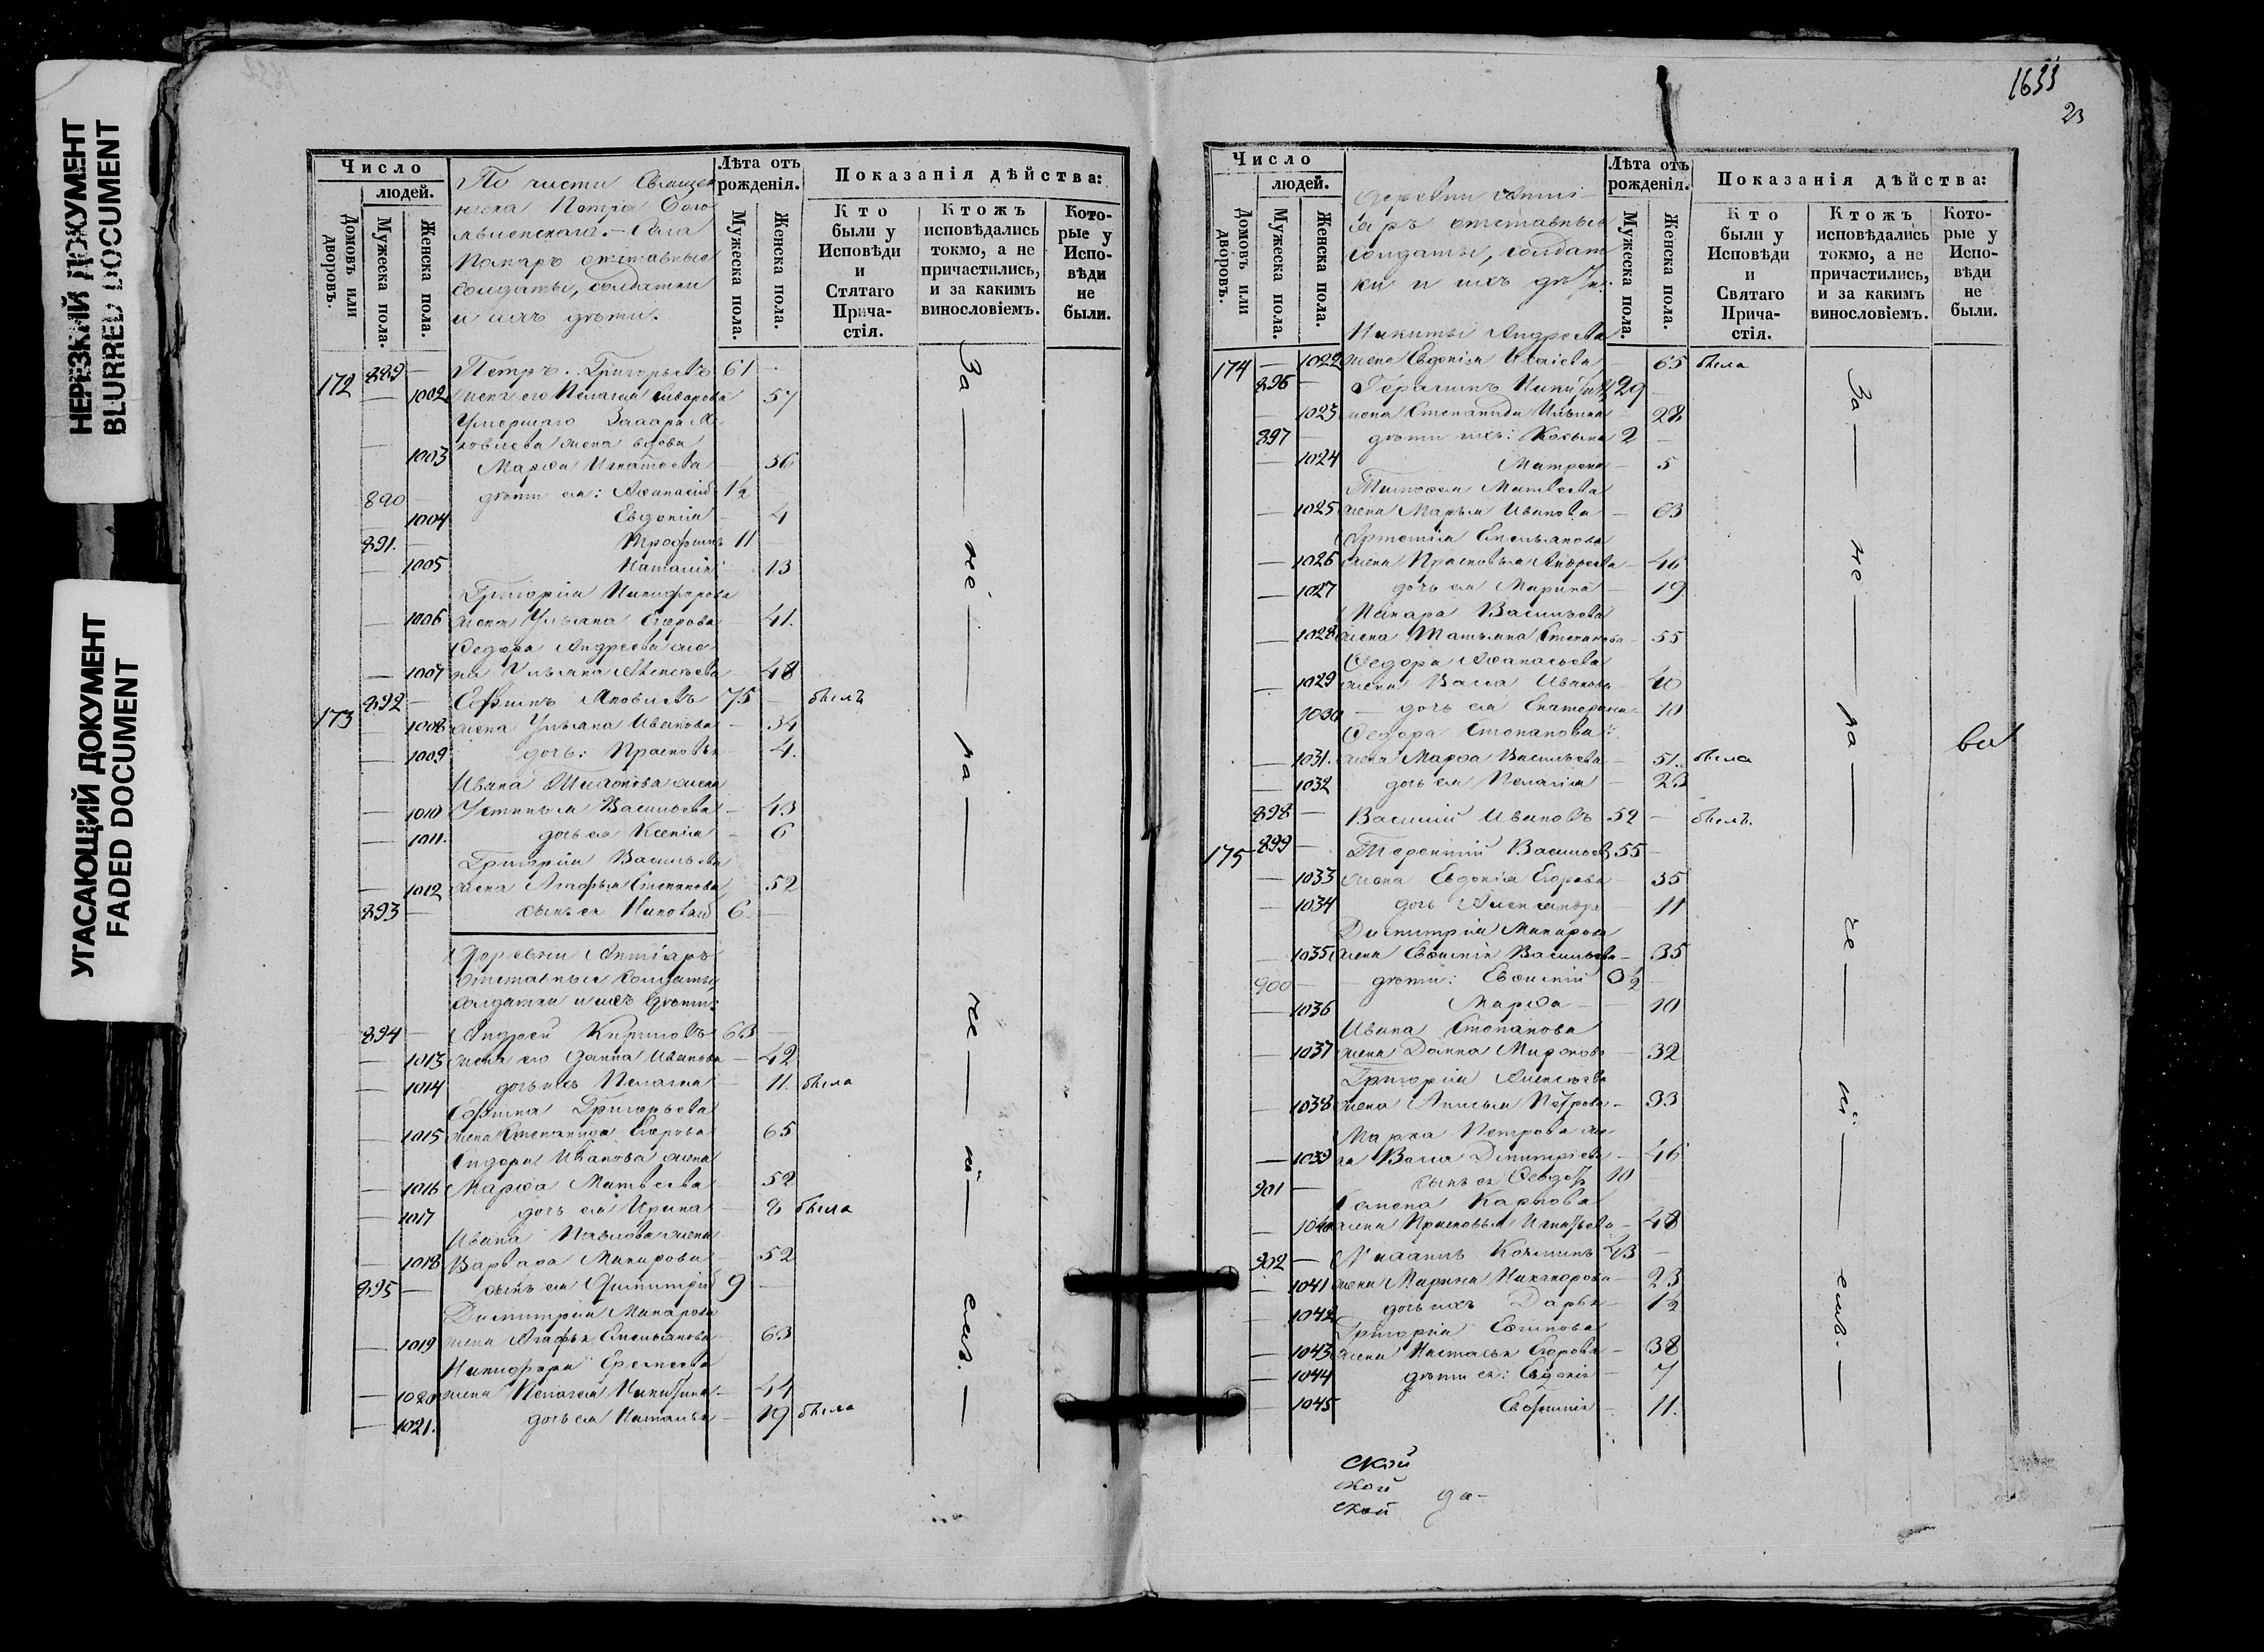 НЕРЕЗКИЙ ДОКУМЕНТ
BLURRED DOCUMENT
УГАСАЮЩИЙ ДОКУМЕНТ
FADED DOCUMENT
Число
людей.
Домовъ или дворовъ.
Мужеска пола.
Женска пола.
По части Священ
ника Петра Бого
явленскаго. – Села
отставные
солдаты, солдатки
и ихъ дѣти.
Лѣта отъ рожденія.
Мужеска пола.
Женска пола.
Показанія дѣйства:
Кто были у Исповѣди и Стятаго Прича-стія.
Ктожъ исповѣдались токмо, а не причастились, и за какимъ винословіемъ.
Кото-рые у Испо-вѣди не были.
172 889 — Петръ Григорьевъ 61
— 1002 жена его Пелагия 57
Умершаго Захара Я-
ковлева жена вдова
— 1003 Марѳа Игнатьева 36
890 — дѣти ея: Аѳанасій 1½
1004 Евдокія — 4
891. Трофимъ 11
— 1005 Наталія 13
Григорія Никифорова
— 1006 жена Ульяна Егорова 41.
Ѳедора Андреева же-
— 1007 на Ульяна Алексѣева 48
173 892 — Ефимъ Яковлевъ 75 — былъ
— 1008 жена Ульяна Иванова — 34
— 1009 дочь: Прасковья — 4.
Ивана жена
— 1010 Устинья Васильева — 43
— 1011. дочь ея Ксенія — 6
Григорія Васильева
— 1012 жена Агафья Степанова 52
893 — сынъ ея 6. —
Деревни
Отставные солдаты,
солдатки и ихъ дѣти:
894 — Андрей Кириловъ 63 —
— 1013 жена его Иванова — 42
— 1014 дочь ихъ Пелагия 11. была
Ефима Григорьева
— 1015 жена Степанида Егорова 65
Сидора Иванова жена
— 1016 Марѳа Матвѣева 52
— 1017 дочь ея Ирина — 8 была
Ивана Павлова жена
— 1018 Варвара Макарова 52
895 — сынъ ея Димитрій 9 —
Димитрія Макарова
— 1019 жена Агафья Емельянова 63
Никифора Еремѣева
— 1020 жена Пелагея Никитина — 44
— 1021. дочь ея Наталья — 19 была
За — не — ра — че — ні — емъ. —
1633
23
Число
людей.
Домовъ или дворовъ.
Мужеска пола.
Женска пола.
Деревни
отставные
солдаты, солдат
ки и ихъ дѣти.
Лѣта отъ рожденія.
Мужеска пола.
Женска пола.
Показанія дѣйства:
Кто были у Исповѣди и Святаго Прича-стія.
Ктожъ исповѣдались токмо, а не причастились, и за какимъ винословіемъ.
Кото-рые у Испо-вѣди не были.
Никиты Андреева
174 — 1022 жена Евдокія Исаіева — 65 была
896 — Герасимъ Никитинъ 29
— 1023 жена Степанида Ильина 28
897 — дѣти ихъ: Козьма 2 —
— 1024 Матрена — 5
Тимоѳея Матвѣева
— 1025 жена Марья Иванова — 63
Артемія Емельянова
— 1026 жена Прасковья Андреева — 46
— 1027 дочь ея Марина — 19
Макара Васильева
— 1028 жена Татьяна Степанова — 55
Ѳедора Аѳанасьева
— 1029 жена Васса Иванова — 40
1030 — дочь ея Екатерина — 10
Ѳедора Степанова
— 1031. жена Марѳа Васильева — 51. была
— 1032 дочь ея Пелагія — 23
898 — Василій Ивановъ 52 — былъ.
175 899 — Терентій Васильевъ 55 —
— 1033 жена Евдокія Егорова 35
— 1034 дочь Александра 11
Димитрія Макарова
— 1035 жена Васильева — 35
900 — дѣти: Евѳимій 0½
— 1036 Марѳа — 10
Ивана Степанова
— 1037 жена Миронова — 32
Григорія Алексѣева
— 1038 жена Анисья Петрова — 33
Марка Петрова же-
— 1039 на Васса Димитріева — 46
901 — сынъ ея 10
Семена Карпова
— 1040 жена Прасковья Игнатьева — 48
902 — 43 —
— 1041 жена Марина Никанорова — 23
— 1042 дочь ихъ Дарья — 1½
Григорія
— 1043 жена Настасья Егорова — 38
— 1044 дѣти ея: Евдокія — 7
— 1045 Евфимія — 11.
За — не — ра — че — ні — емъ. —
ва
ской
ской
ской да-